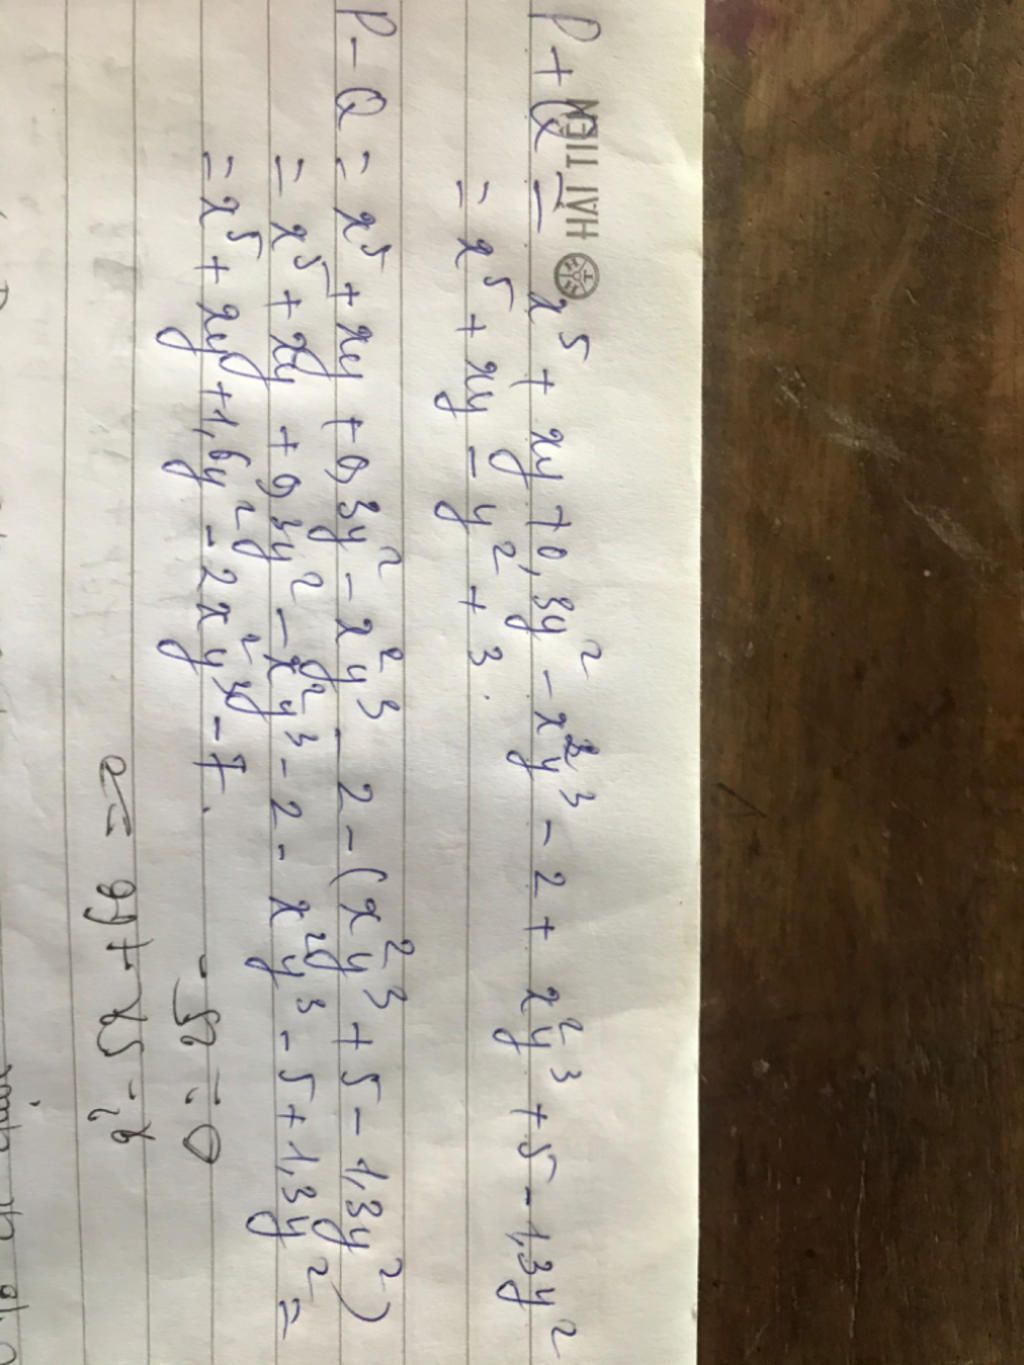 HAI TIEN
P + Q = x⁵ + xy + 0,3y² - x²y³ - 2 + x²y³ + 5 - 1,3y²
= x⁵ + xy - y² + 3.
P - Q = x⁵ + xy + 0,3y² - x²y³ - 2 - (x²y³ + 5 - 1,3y²)
= x⁵ + xy + 0,3y² - x²y³ - 2 - x²y³ - 5 + 1,3y² =
= x⁵ + xy + 1,6y² - 2x²y³ - 7.